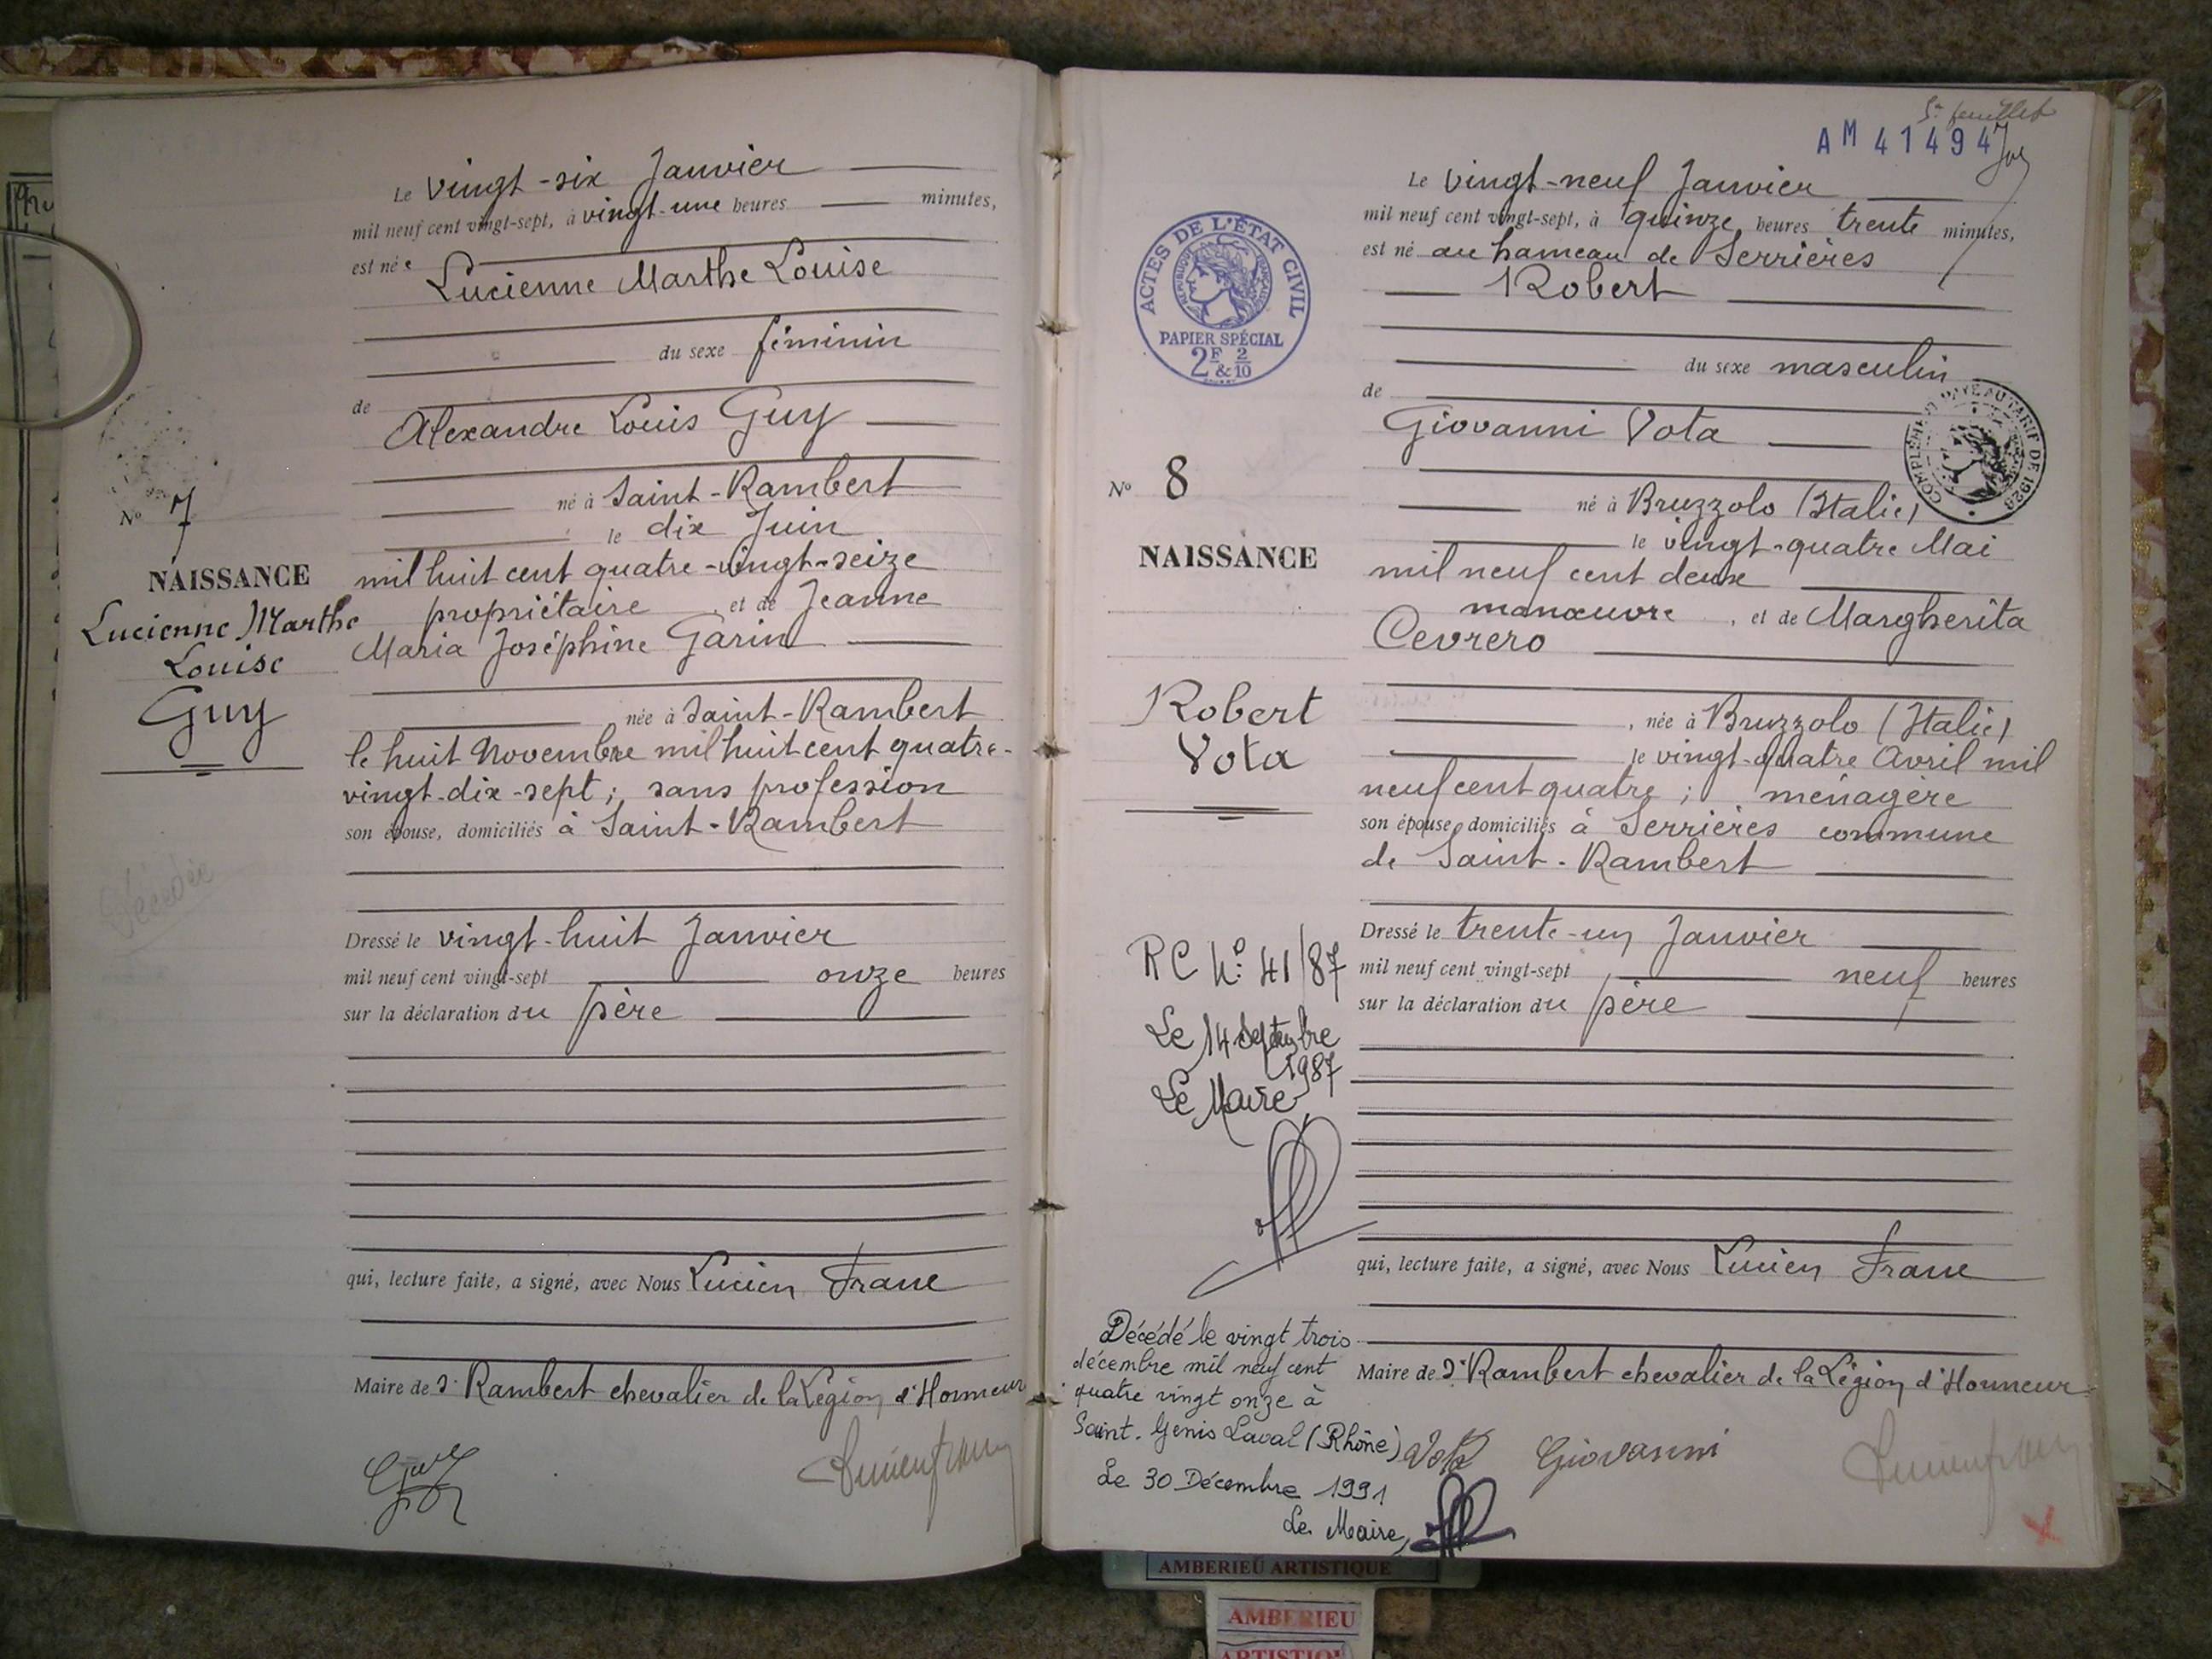 Le vingt-six Janvier
mil neuf cent vingt-sept, à vingt-une heures minutes,
est née
Lucienne Marthe Louise
du sexe féminin
de
Alexandre Louis Guy
né à Saint-Rambert
le dix Juin
mil huit cent quatre-vingt-seize
propriétaire, et de Jeanne
Maria Joséphine Garin
née à Saint-Rambert
le huit Novembre mil huit cent quatre-
vingt-dix-sept; sans profession
son épouse, domiciliés à Saint-Rambert
Dressé le vingt-huit Janvier
mil neuf cent vingt-sept onze heures
sur la déclaration du père
qui, lecture faite, a signé, avec Nous Lucien Franc
Maire de St Rambert chevalier de la Légion d'Honneur
Guy
No 7
NAISSANCE
Lucienne Marthe
Louise
Guy
Décédée
5e feuillet
AM 41494
ACTES DE L'ÉTAT CIVIL
RÉPUBLIQUE FRANÇAISE
PAPIER SPÉCIAL
2F & 2/10
No 8
NAISSANCE
Robert
Vota
RC No: 41/87
Le 14 Septembre
1987
Le Maire
Décédé le vingt trois
décembre mil neuf cent
quatre vingt onze à
Saint-Genis Laval (Rhône)
Le 30 Décembre 1991
Le Maire,
Le vingt-neuf Janvier
mil neuf cent vingt-sept, à quinze heures trente minutes,
est né au hameau de Serrières
Robert
du sexe masculin
de
Giovanni Vota
COMPLÉMENT TARIF DE 1925
né à Bruzzolo (Italie)
le vingt-quatre Mai
mil neuf cent deux
manœuvre, et de Margherita
Cevrero
, née à Bruzzolo (Italie)
le vingt-quatre Avril mil
neuf cent quatre; ménagère
son épouse, domiciliés à Serrières commune
de Saint-Rambert
Dressé le trente-un Janvier
mil neuf cent vingt-sept neuf heures
sur la déclaration du père
qui, lecture faite, a signé, avec Nous Lucien Franc
Maire de St Rambert chevalier de la Légion d'Honneur
Vota Giovanni
AMBERIEU ARTISTIQUE
AMBERIEU
ARTISTIQUE